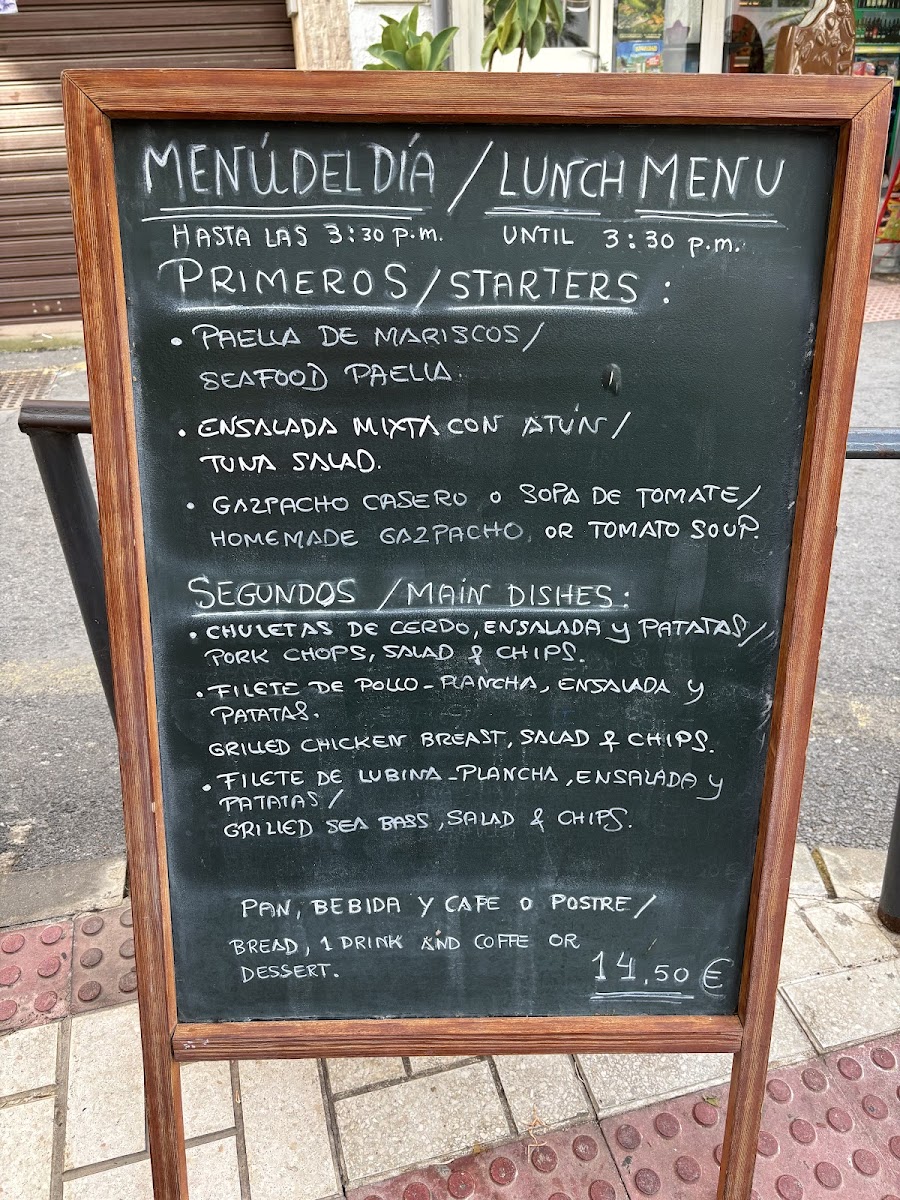 MENÚ DEL DÍA / LUNCH MENU
HASTA LAS 3:30 P.M. UNTIL 3:30 p.m.
PRIMEROS / STARTERS :
• PAELLA DE MARISCOS/
SEAFOOD PAELLA.
• ENSALADA MIXTA CON ATÚN /
TUNA SALAD.
• GAZPACHO CASERO O SOPA DE TOMATE/
HOMEMADE GAZPACHO, OR TOMATO SOUP.
SEGUNDOS / MAIN DISHES:
• CHULETAS DE CERDO, ENSALADA y PATATAS/
PORK CHOPS, SALAD & CHIPS.
• FILETE DE POLLO-PLANCHA, ENSALADA y
PATATAS.
GRILLED CHICKEN BREAST, SALAD & CHIPS.
• FILETE DE LUBINA-PLANCHA, ENSALADA y
PATATAS/
GRILLED SEA BASS, SALAD & CHIPS.
PAN, BEBIDA Y CAFE O POSTRE/
BREAD, 1 DRINK AND COFFE OR
DESSERT.
14,50 €